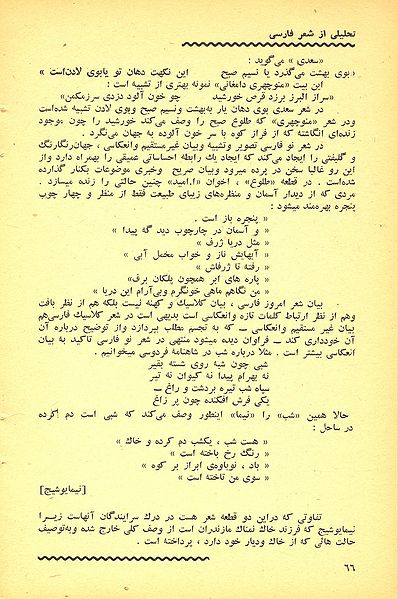 تحلیلی از شعر فارسی
«سعدی» می‌گوید :
«بوی بهشت می‌گذرد یا نسیم صبح این نکهت دهان تو یابوی لادن‌است »
این بیت «منوچهری دامغانی» نمونه بهتری از تشبیه است :
«سراز البرز برزد قرص خورشید چو خون آلود دزدی سرزمکمن»
در شعر سعدی بوی دهان یار به‌بهشت ونسیم صبح وبوی لادن تشبیه شده‌است
ودر شعر «منوچهری» که طلوع صبح را وصف می‌کند خورشید را چون موجود
زنده‌ای انگاشته که از فراز کوه با سر خون آلوده به جهان می‌نگرد .
در شعر نو فارسی تصویر وتشبیه وبیان غیرمستقیم وانعکاسی ، جهان‌رنگارنگ
و گلبفتی را ایجاد می‌کند که ایجاد یك رابطه احساساتی عمیقی را بهمراه دارد واز
این رو غالبا سخن در پرده میرود وبیان صریح وخبری موضوعات بکنار گذارده
شده‌است . در قطعه «طلوع» ، اخوان «ا.امید» چنین حالتی را زنده میسازد .
مردی که از دیدار آسمان و منظره‌های زیبای طبیعت فقط از منظر و چهار چوب
پنجره بهره‌مند میشود :
« پنجره باز است .
« و آسمان در چارچوب دید گه پیدا »
« مثل دریا ژرف »
« آبهایش ناز و خواب مخمل آبی »
« رفته تا ژرفاش »
« پاره های ابر همچون پلکان برف»
« من نگاهم ماهی خونگرم وبی‌آرام این دریا »
بیان شعر امروز فارسی ، بیان کلاسیك و کهنه نیست بلکه هم از نظر بافت
وهم از نظر ارتباط کلمات تازه وانعکاسی است بدیهی است در شعر کلاسیك فارسی‌هم
بیان غیر مستقیم وانعکاسی ــ که به تجسم مطلب بپردازد واز توضیح درباره آن
آن خودداری کند ــ فراوان دیده میشود منتهی در شعر نو فارسی تاکید به بیان
انعکاسی بیشتر است . مثلا درباره شب در شاهنامه فردوسی میخوانیم .
شبی چون شبه روی شسته بقیر
نه بهرام پیدا نه کیوان نه تیر
سپاه شب تیره بردشت و راغ ــ
یکی فرش افکنده چون پر زاغ
حالا همین «شب» را «نیما» اینطور وصف می‌کند که شبی است دم کرده
در ساحل :
« هست شب ، یکشب دم کرده و خاك »
« رنگ رخ باخته است »
« باد ، نوباوه‌ی ابراز بر کوه »
« سوی من تاخته است »
[نیمایوشیج]
تفاوتی که دراین دو قطعه شعر هست در درك سرایندگان آنهاست زیرا
نیمایوشیج که فرزند خاك نمناك مازندران است از وصف کلی خارج شده وبه‌توصیف
حالت هائی که از خاك ودیار خود دارد ، پرداخته است .
٦٦